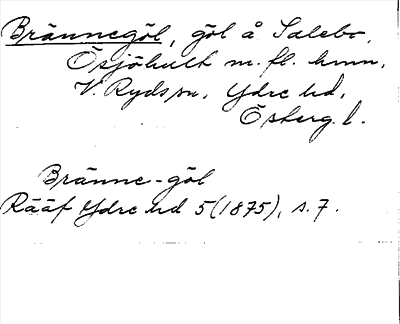 Brännegöl, göl å Salebo,
Ösjöhult m.fl. hmn,
V. Ryds sn, Ydre hd,
Österg. l.
Bränne-göl
Rääf Ydre hd 5 (1875), s. 7.